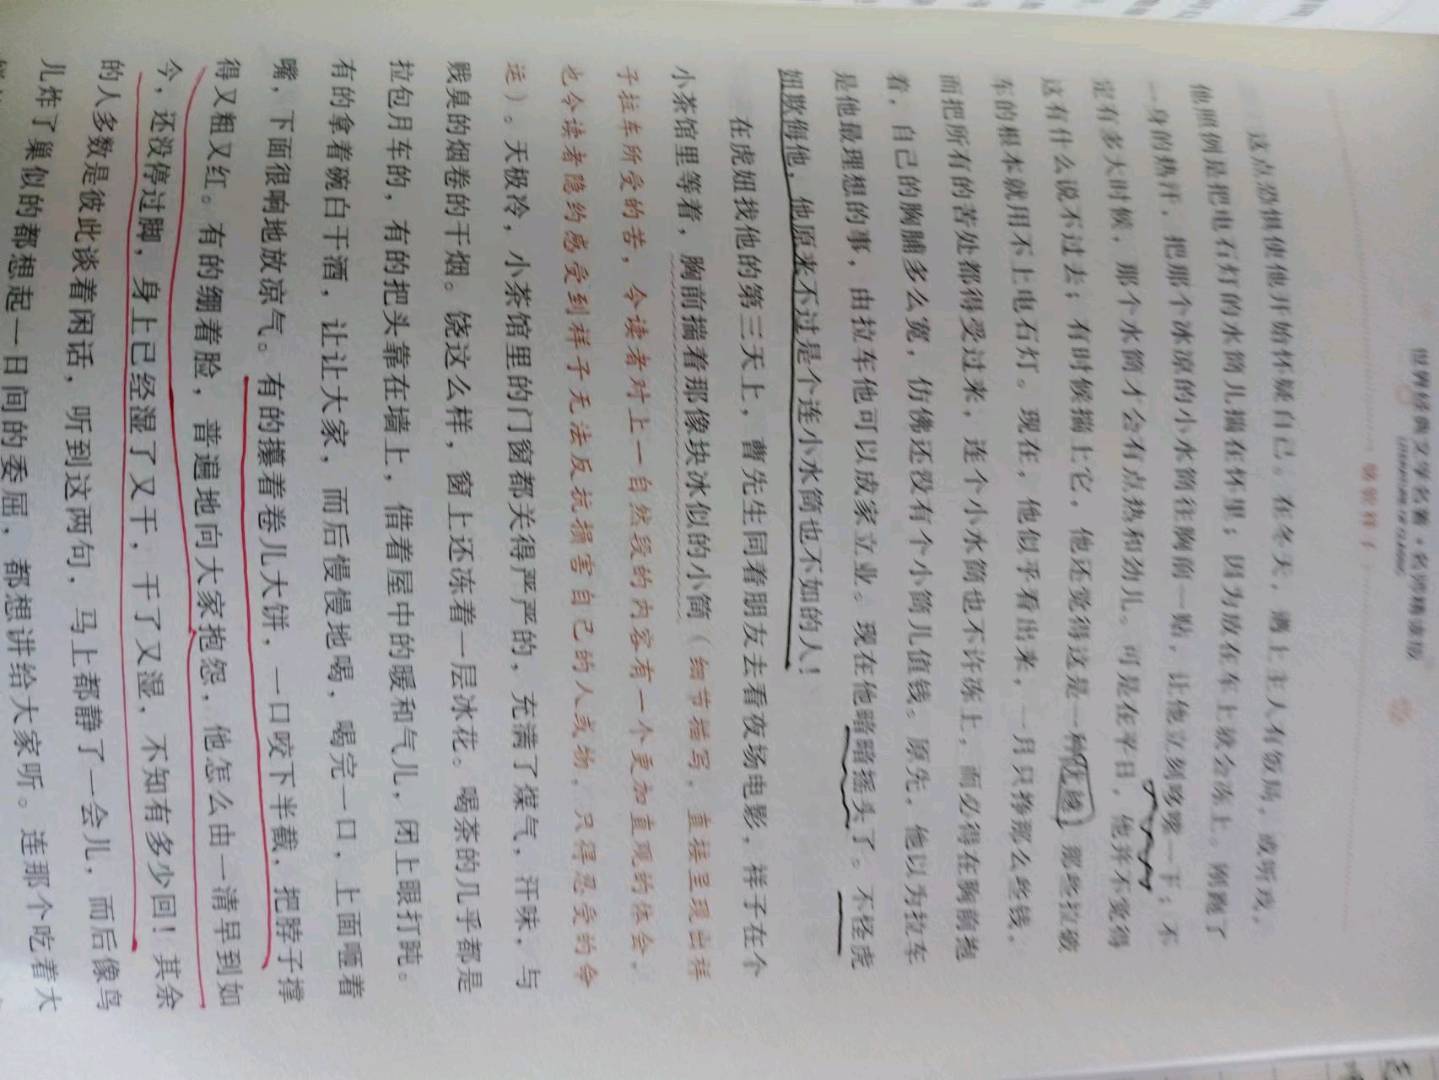 世界经典文学名著·名师精读版
骆驼祥子
这点恐惧使他开始怀疑自己。在冬天，遇上主人有饭局，或听戏，
他照例是把电石灯的水筒儿揣在怀里；因为放在车上就会冻上。刚跑了
一身的热汗，把那个冰凉的小水筒往胸前一贴，让他立刻哆嗦一下；不
定有多大时候，那个水筒才会有点热和劲儿。可是在平日，他并不觉得
这有什么说不过去；有时候揣上它，他还觉得这是一种优越，那些拉破
车的根本就用不上电石灯。现在，他似乎看出来，一月只挣那么些钱，
而把所有的苦处都得受过来，连个小水筒也不许冻上，而必得在胸前抱
着，自己的胸脯多么宽，仿佛还没有个小筒儿值钱。原先，他以为拉车
是他最理想的事，由拉车他可以成家立业。现在他暗暗摇头了。不怪虎
妞欺侮他，他原来不过是个连小水筒也不如的人！
在虎妞找他的第三天上，曹先生同着朋友去看夜场电影，祥子在个
小茶馆里等着，胸前揣着那像块冰似的小筒（细节描写，直接呈现出祥
子拉车所受的苦，令读者对上一自然段的内容有一个更加直观的体会，
也令读者隐约感受到祥子无法反抗损害自己的人或物，只得忍受的命
运）。天极冷，小茶馆里的门窗都关得严严的，充满了煤气，汗味，与
贱臭的烟卷的干烟。饶这么样，窗上还冻着一层冰花。喝茶的几乎都是
拉包月车的，有的把头靠在墙上，借着屋中的暖和气儿，闭上眼打盹。
有的拿着碗白干酒，让让大家，而后慢慢地喝，喝完一口，上面咂着
嘴，下面很响地放凉气。有的攥着卷儿大饼，一口咬下半截，把脖子撑
得又粗又红。有的绷着脸，普遍地向大家抱怨，他怎么由一清早到如
今，还没停过脚，身上已经湿了又干，干了又湿，不知有多少回！其余
的人多数是彼此谈着闲话，听到这两句，马上都静了一会儿，而后像鸟
儿炸了巢似的都想起一日间的委屈，都想讲给大家听。连那个吃着大